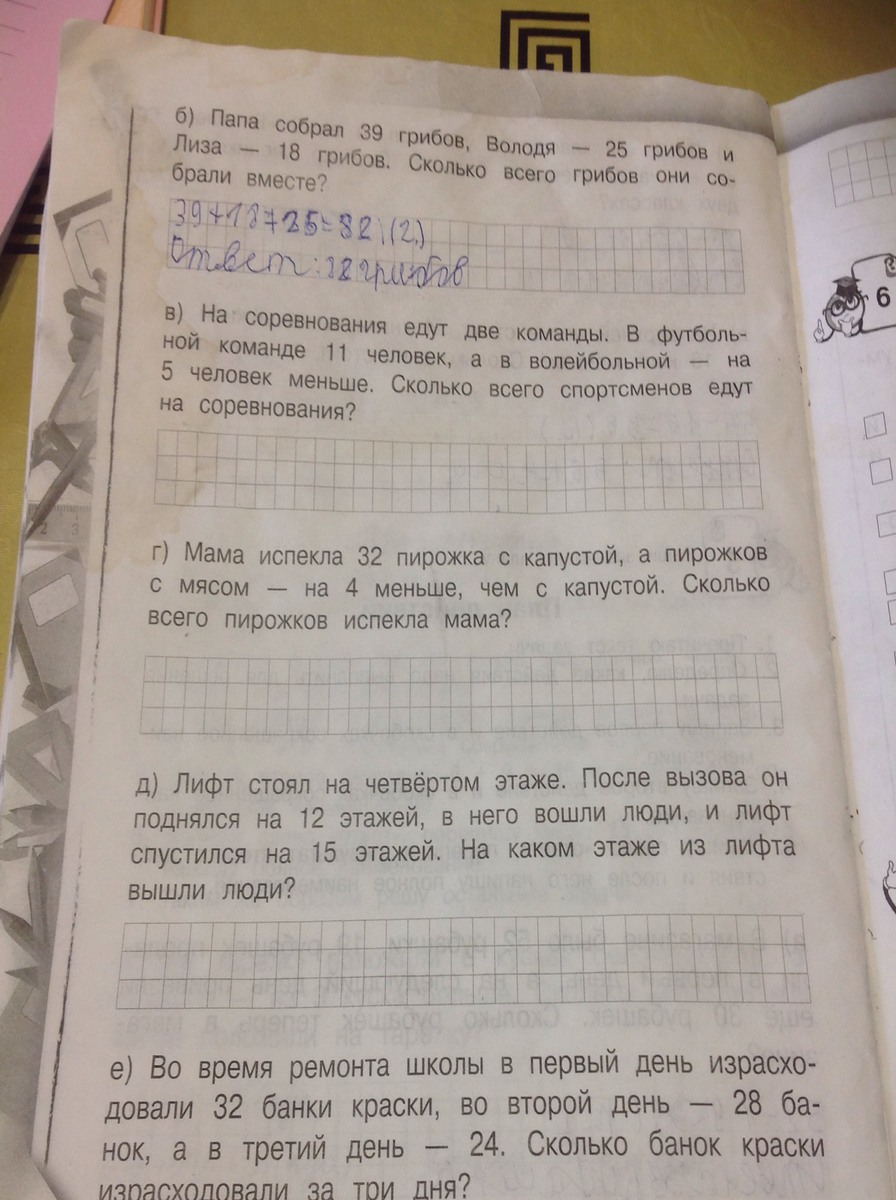 б) Папа собрал 39 грибов, Володя — 25 грибов и
Лиза — 18 грибов. Сколько всего грибов они со-
брали вместе?
39+18+25=82 (г.)
Ответ: 82 грибов
в) На соревнования едут две команды. В футболь-
ной команде 11 человек, а в волейбольной — на
5 человек меньше. Сколько всего спортсменов едут
на соревнования?
г) Мама испекла 32 пирожка с капустой, а пирожков
с мясом — на 4 меньше, чем с капустой. Сколько
всего пирожков испекла мама?
д) Лифт стоял на четвёртом этаже. После вызова он
поднялся на 12 этажей, в него вошли люди, и лифт
спустился на 15 этажей. На каком этаже из лифта
вышли люди?
е) Во время ремонта школы в первый день израсхо-
довали 32 банки краски, во второй день — 28 ба-
нок, а в третий день — 24. Сколько банок краски
израсходовали за три дня?
6
2 3